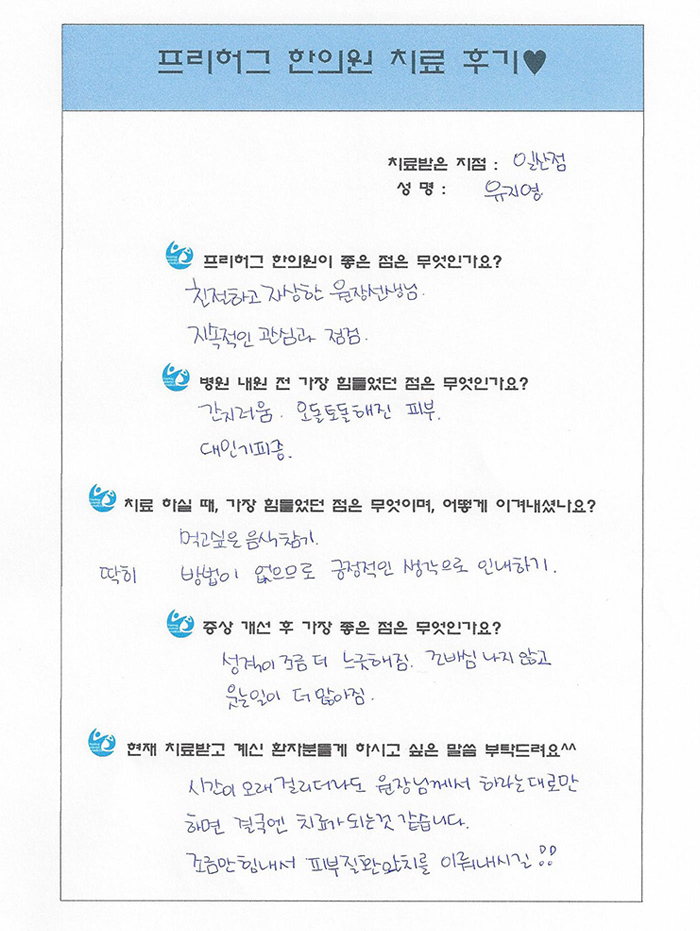 프리허그 한의원 치료 후기♥
치료받은 지점 : 일산점
성 명 : 유지영
프리허그 한의원이 좋은 점은 무엇인가요?
친절하고 자상한 원장선생님.
지속적인 관심과 점검.
병원 내원 전 가장 힘들었던 점은 무엇인가요?
간지러움. 오돌토돌해진 피부.
대인기피증.
치료 하실 때, 가장 힘들었던 점은 무엇이며, 어떻게 이겨내셨나요?
먹고싶은 음식참기.
딱히 방법이 없으므로 긍정적인 생각으로 인내하기.
증상 개선 후 가장 좋은 점은 무엇인가요?
성격이 조금 더 느긋해짐. 조바심 나지 않고
웃는일이 더 많아짐.
현재 치료받고 계신 환자분들게 하시고 싶은 말씀 부탁드려요^^
시간이 오래 걸리더라도 원장님께서 하라는대로만
하면 결국엔 치료가 되는것 같습니다.
조금만 힘내서 피부질환완치를 이뤄내시길!!